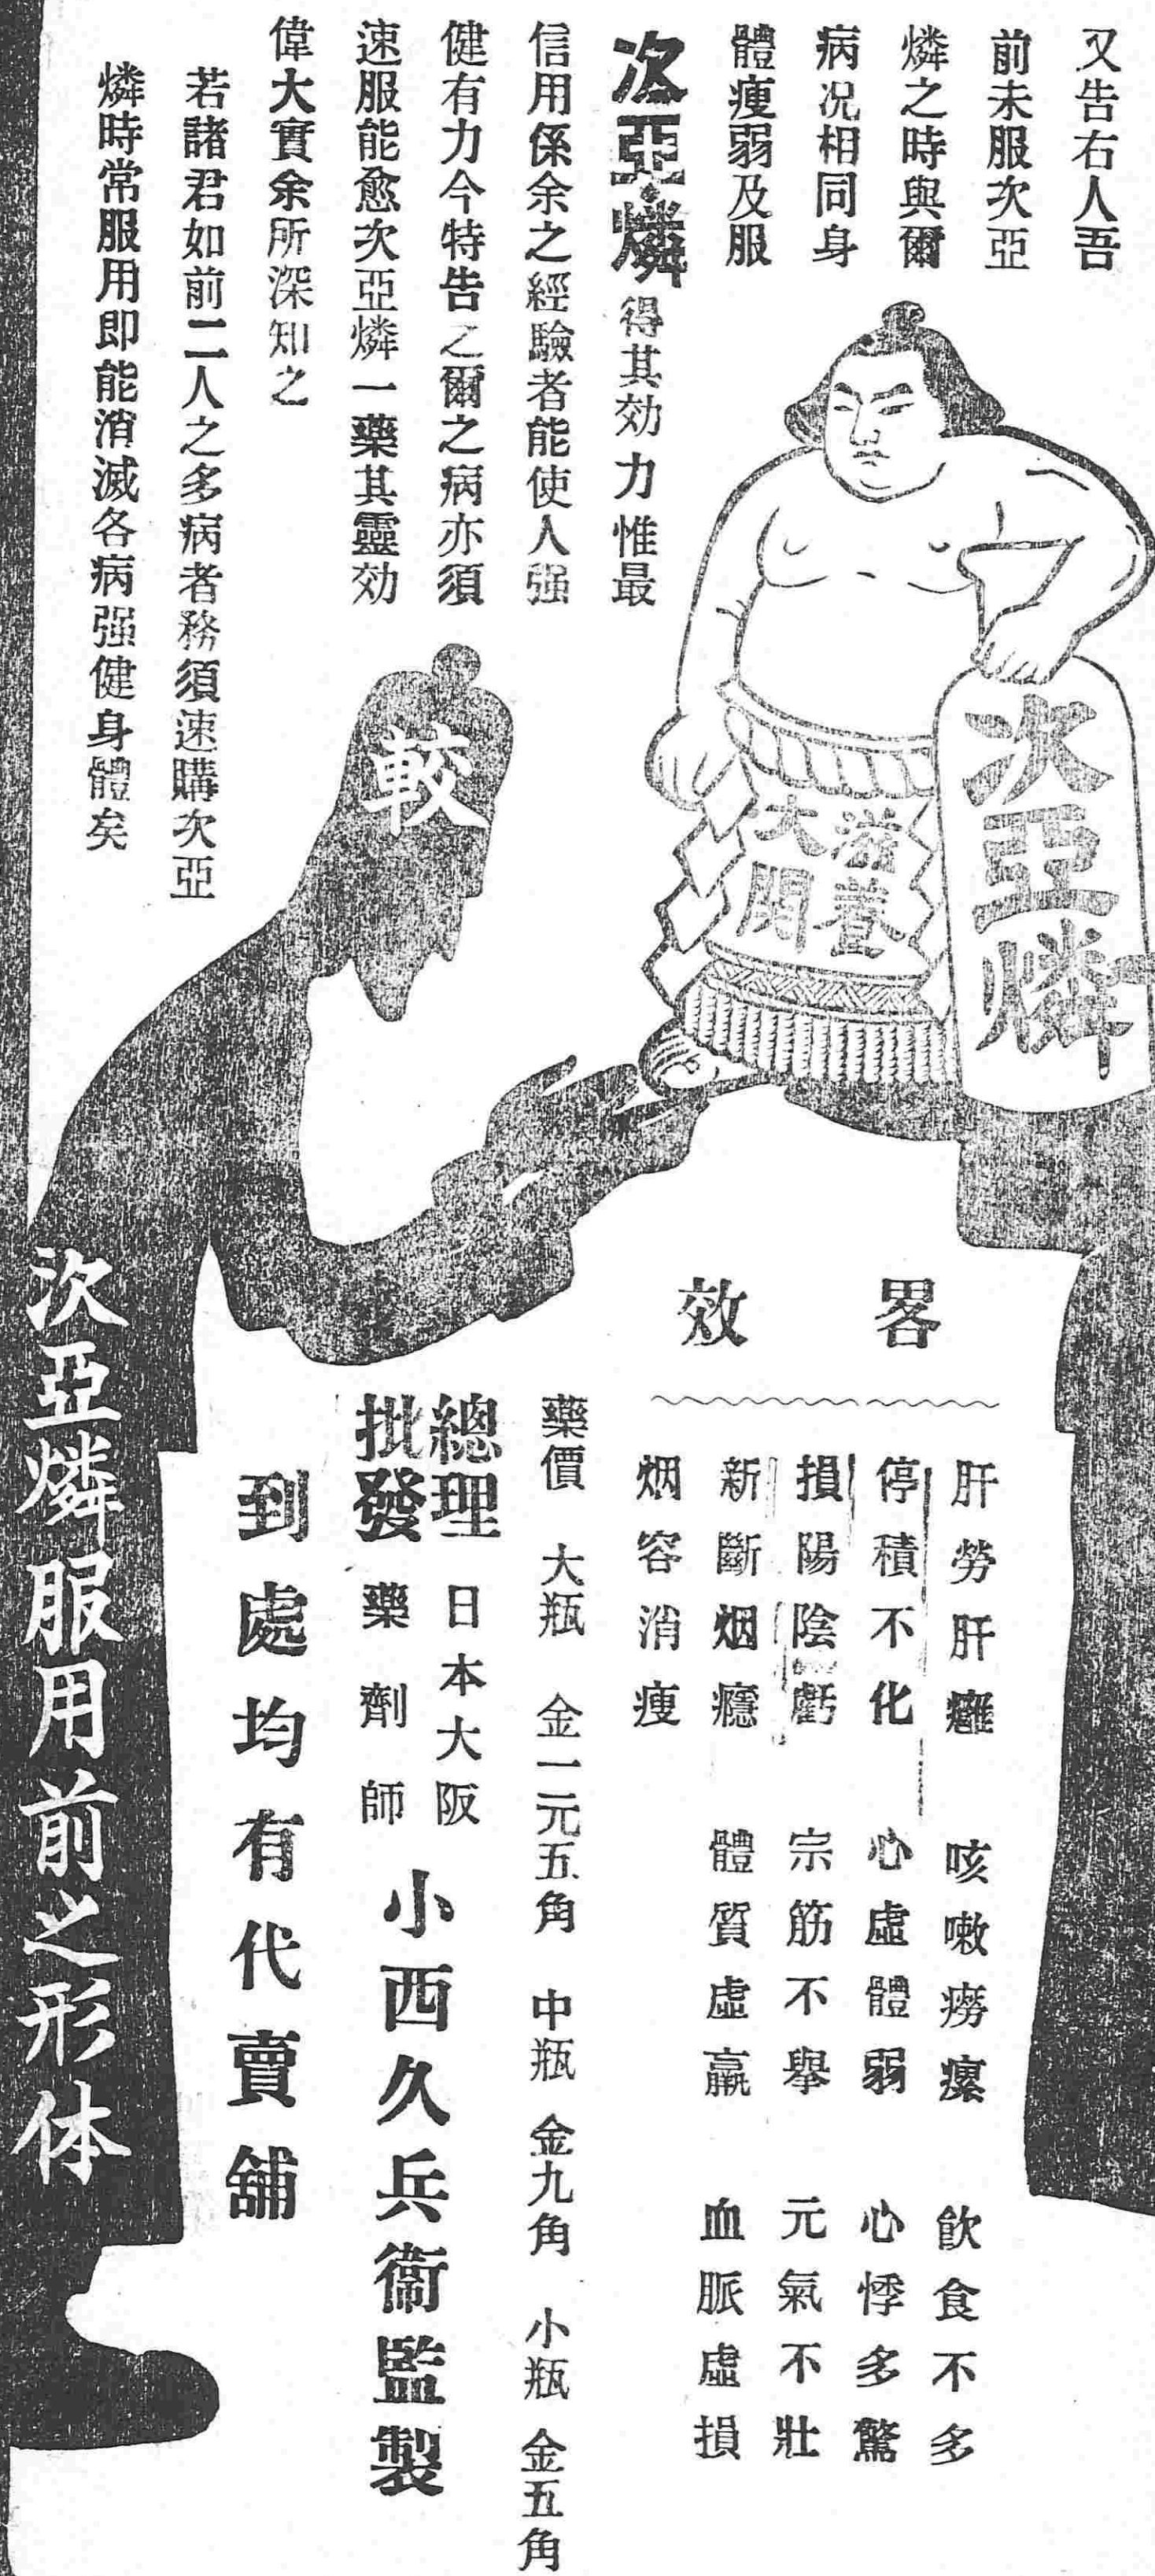 又告右人吾
前未服次亞
燐之時與爾
病况相同身
體瘦弱及服
次亞燐得其効力惟最
信用係余之經驗者能使人强
健有力今特告之爾之病亦須
速服能愈次亞燐一藥其靈効
偉大實余所深知之
若諸君如前二人之多病者務須速購次亞
燐時常服用即能消滅各病强健身體矣
次亞燐
滋養
大關
較
畧效
肝勞肝癰 咳嗽癆瘰 飲食不多
停積不化 心虛體弱 心悸多驚
損陽陰虧 宗筋不舉 元氣不壯
新斷烟癮 體質虛羸 血脈虛損
烟容消瘦
藥價 大瓶 金一元五角 中瓶 金九角 小瓶 金五角
總理 日本大阪
批發 藥劑師
小西久兵衞監製
到處均有代賣舖
次亞燐服用前之形体